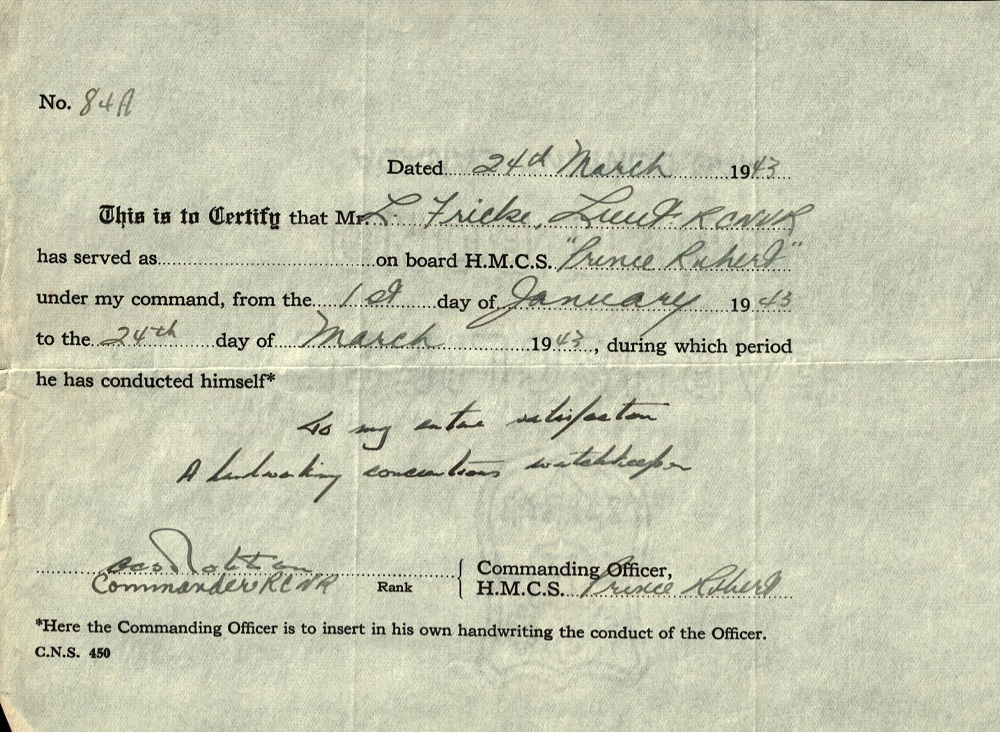 No. 84A
Dated 24th March 1943
This is to Certify that Mr. L. Fricke, Lieut RCNVR
has served as on board H.M.C.S. "Prince Robert"
under my command, from the 1st day of January 1943
to the 24th day of March 1943, during which period
he has conducted himself*
to my entire satisfaction
A hardworking conscientious watchkeeper
Commander RCNR Rank
Commanding Officer,
H.M.C.S. Prince Robert
*Here the Commanding Officer is to insert in his own handwriting the conduct of the Officer.
C.N.S. 450